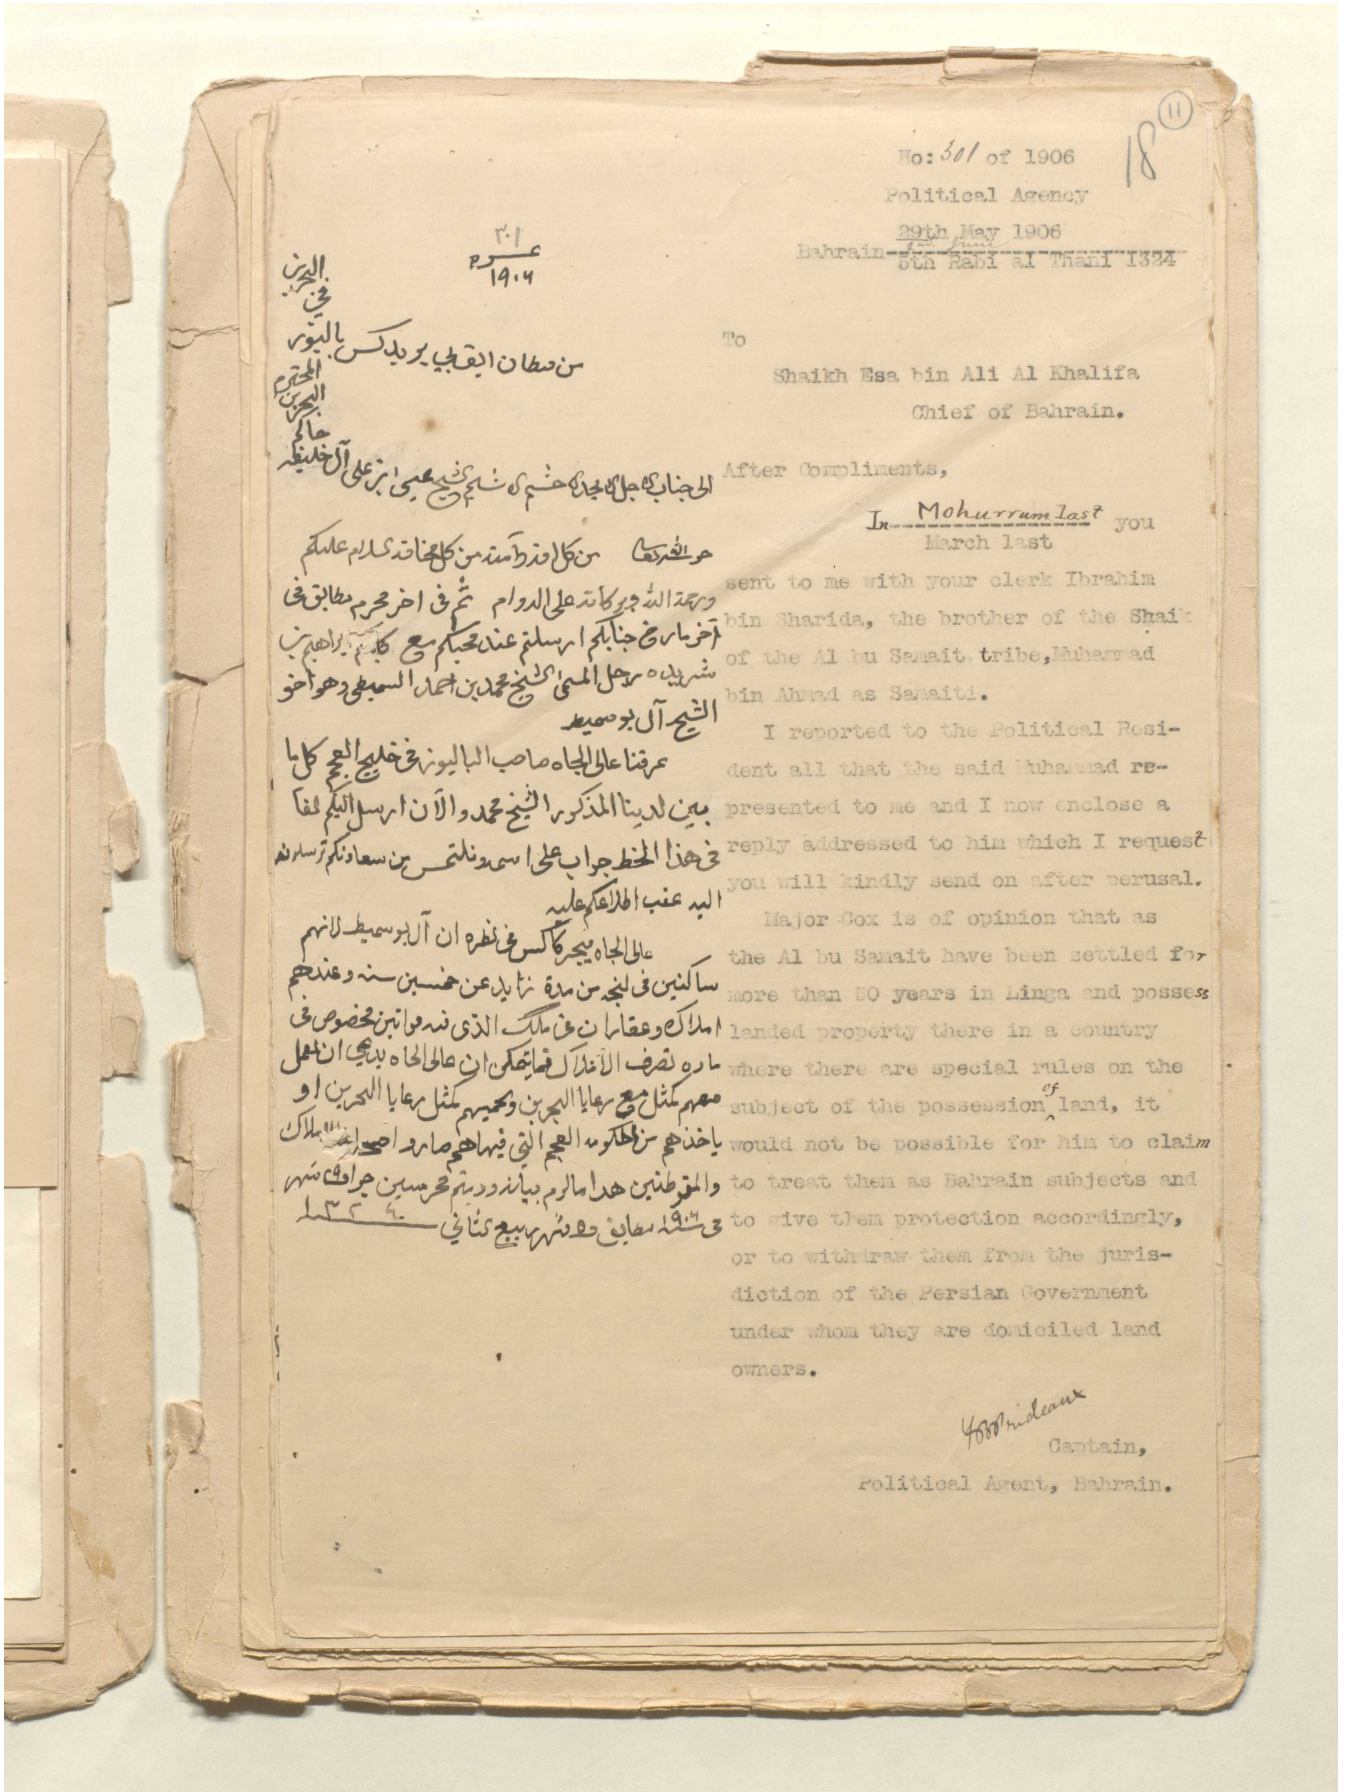 11
18
No: 301 of 1906
Political Agency
29th May 1906
2nd June
Bahrain
5th Rabi al Thani 1324
To
Shaikh Esa bin Ali Al Khalifa
Chief of Bahrain.
After Compliments,
In Mohurrum last you
March last
sent to me with your clerk Ibrahim
bin Sharida, the brother of the Shaik
of the Al bu Samait tribe, Muhammad
bin Ahmad as Samaiti.
I reported to the Political Resi-
dent all that the said Muhammad re-
presented to me and I now enclose a
reply addressed to him which I request
you will kindly send on after perusal.
Major Cox is of opinion that as
the Al bu Samait have been settled for
more than 50 years in Linga and possess
landed property there in a country
where there are special rules on the
subject of the possession of land, it
would not be possible for him to claim
to treat them as Bahrain subjects and
to give them protection accordingly,
or to withdraw them from the juris-
diction of the Persian Government
under whom they are domiciled land
owners.
Prideaux
Captain,
Political Agent, Bahrain.
٣٠١
نمره
١٩٠٦
من كبطان بريدكس باليوز
في
البحرين
الى جناب الشيخ عيسى ابن علي آل خليفه
حاكم
البحرين
المحترم
من كل من كل مخافة السلام عليكم
ورحمة الله وبركاته على الدوام ثم في اخر محرم مطابق في
آخر مارچ جنابكم ارسلتم عند محبكم مع كاتبكم ابراهيم بن
شريده رجل المسمى الشيخ محمد بن احمد السميطي وهو اخو
الشيخ آل بوسميط
عرفنا عالي الجاه صاحب الباليوز في خليج العجم كل ما
بين لدينا المذكور الشيخ محمد والآن ارسل اليكم لفا
في هذا الخط جواب على اسمه نلتمس من سعادتكم ترسلونه
اليه عقب اطلاعكم عليه
عالي الجاه ميجر كاكس في نظره ان آل بوسميط لانهم
ساكنين في لنجه من مدة زايد عن خمسين سنه وعندهم
املاك وعقارات في ملك الذي فيه قوانين مخصوص في
ماده تصرف الاملاك فما يمكن ان عالي الجاه يدعي ان يعمل
معهم كمثل مع رعايا البحرين ويحميهم كمثل رعايا البحرين او
ياخذهم من حكومة العجم التي فيها هم صاروا اصحاب الاملاك
والمتوطنين هذا ما لزم بيانه ودمتم محروسين حرر ٢٩ شهر
مي سنة ١٩٠٦ مطابق ٥ شهر ربيع الثاني ١٣٢٤